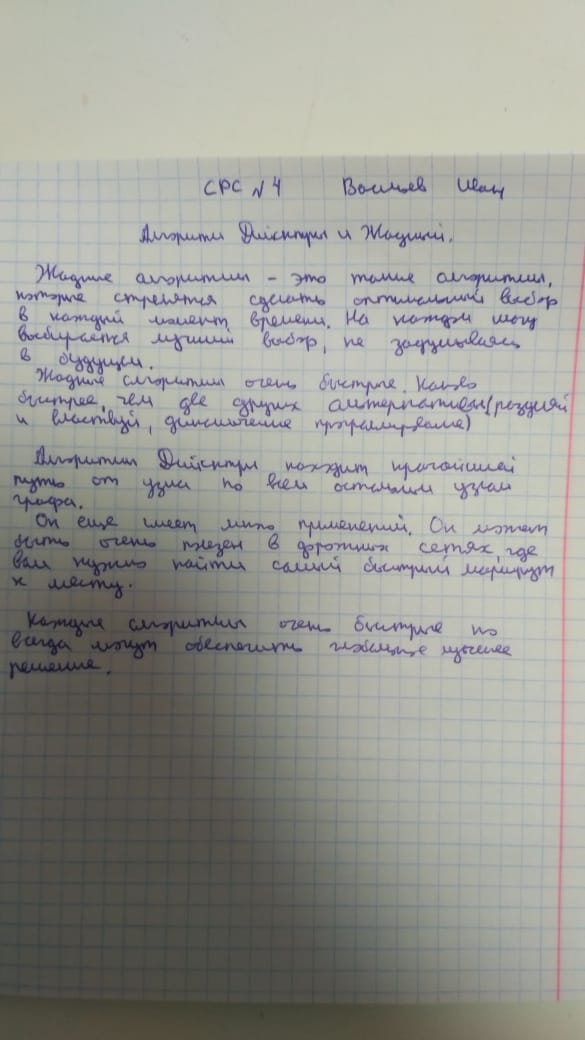 СРС №4 Васильев Иван
Алгоритм Дейкстры и Жадный.
Жадные алгоритмы – это такие алгоритмы,
которые стремятся сделать оптимальный выбор
в каждый момент времени. На каждом шагу
выбирается лучший выбор, не задумываясь
в будущем.
Жадные алгоритмы очень быстрые.
быстрее, чем две других альтернативы (разделяй
и властвуй, динамическое программирование)
Алгоритм Дейкстры находит кратчайший
путь от узла по всем остальным узлам
графа.
Он еще имеет много применений. Он может
быть очень полезен в дорожных сетях, где
вам нужно найти самый быстрый маршрут
к месту.
алгоритмы очень быстрые но
всегда могут обеспечить глобальное лучшее
решение.